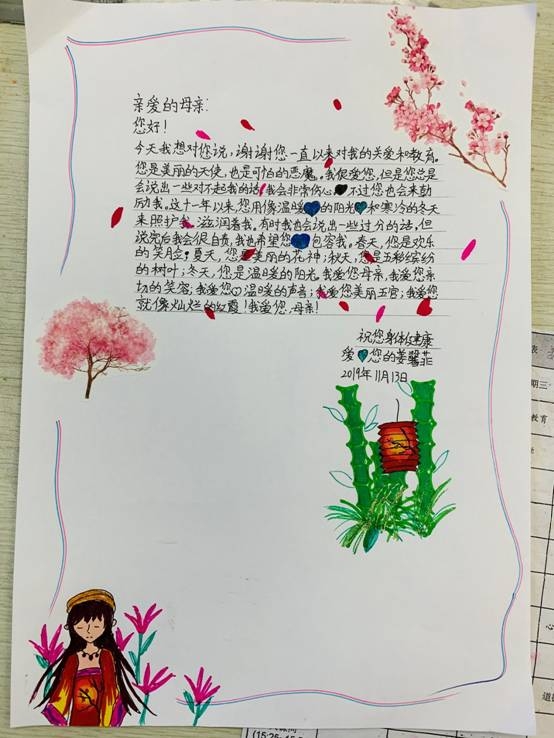 亲爱的母亲:
您好!
今天我想对你说,谢谢您一直以来对我的关爱和教育。
您是美丽的天使,也是可怕的恶魔。我很爱您,但是您总是
会说出一些对不起我的话,我会非常伤心,不过您也会来鼓
励我,这十一年以来,您用像温暖的阳光和寒冷的冬天
来照护我,滋润着我,有时我也会说出一些过分的话,但
说完后我会很自责,我也希望您包容我。春天,您是欢乐
的笑脸;夏天,您是美丽的花神;秋天,您是五彩缤纷
的树叶;冬天,您是温暖的阳光。我爱您母亲,我爱您亲
切的笑容;我爱您温暖的声音;我爱您美丽五官;我爱您
就像灿烂的红霞!我爱您,母亲!
祝您身体健康
爱您的姜馨菲
2019年11月13日
表
期三
教育
心
道
(15:26-15